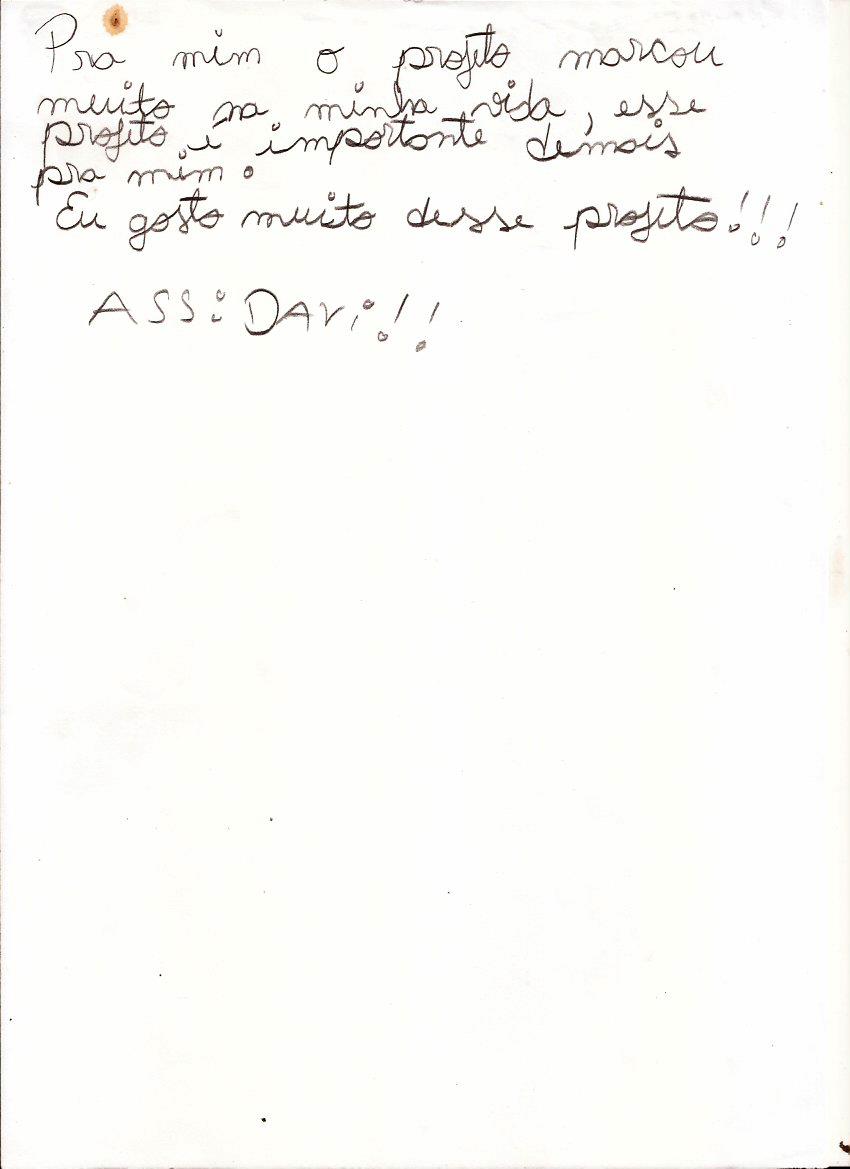 Pra mim o projeto marcou
muito na minha vida, esse
projeto é importante demais
pra mim.
Eu gosto muito desse projeto!!!
ASS: DAVi!!